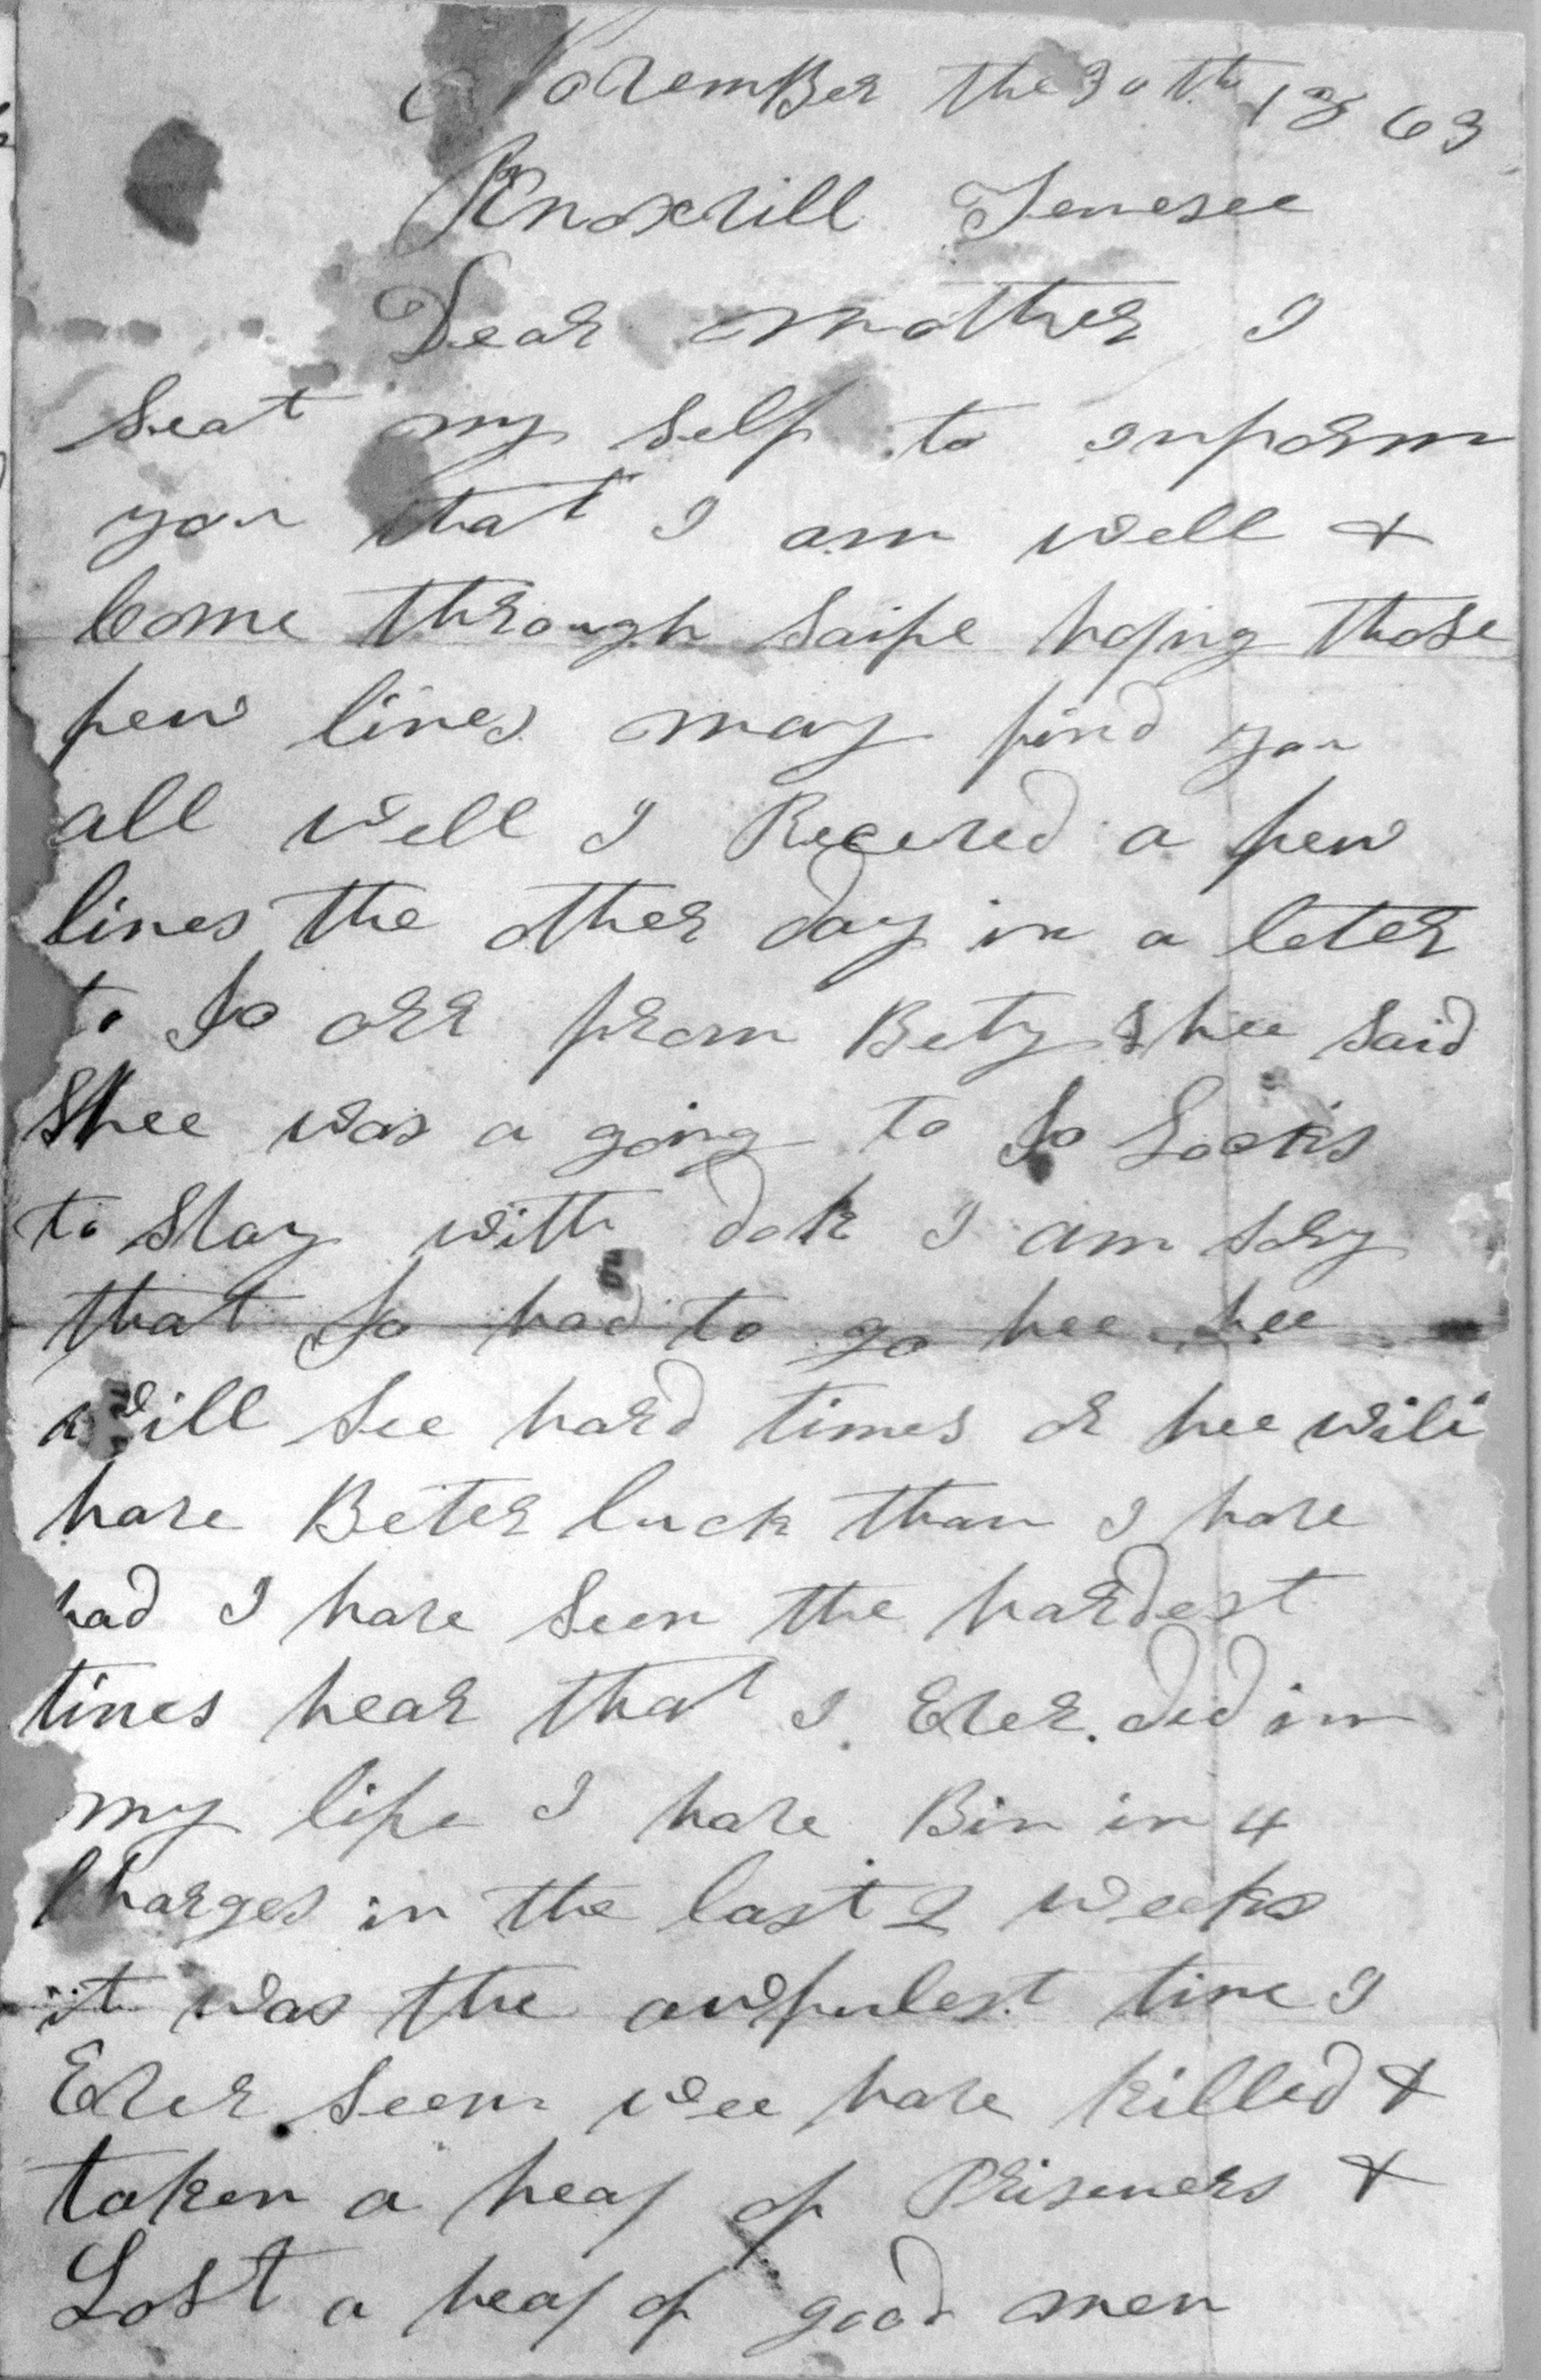 November the 30th 1863
Knoxvill Tenesee
Dear Mother I
Seat my self to inform
you that I am well &
Come through Saife hoping those
few lines may find you
all well I Receved a few
lines the other day in a leter
to Jo orr from Bety Shee Said
Shee was a going to Jo Locks
to Stay with dok I am Sory
that Jo had to go hee hee
will See hard times or hee will
have Beter luck than I have
had I have Seen the hardest
times hear that I Ever did in
my life I have Bin in 4
Charges in the last 2 weeks
it was the awfulest time I
Ever Seen wee have killed &
taken a heap of Priseners &
Lost a heap of good men